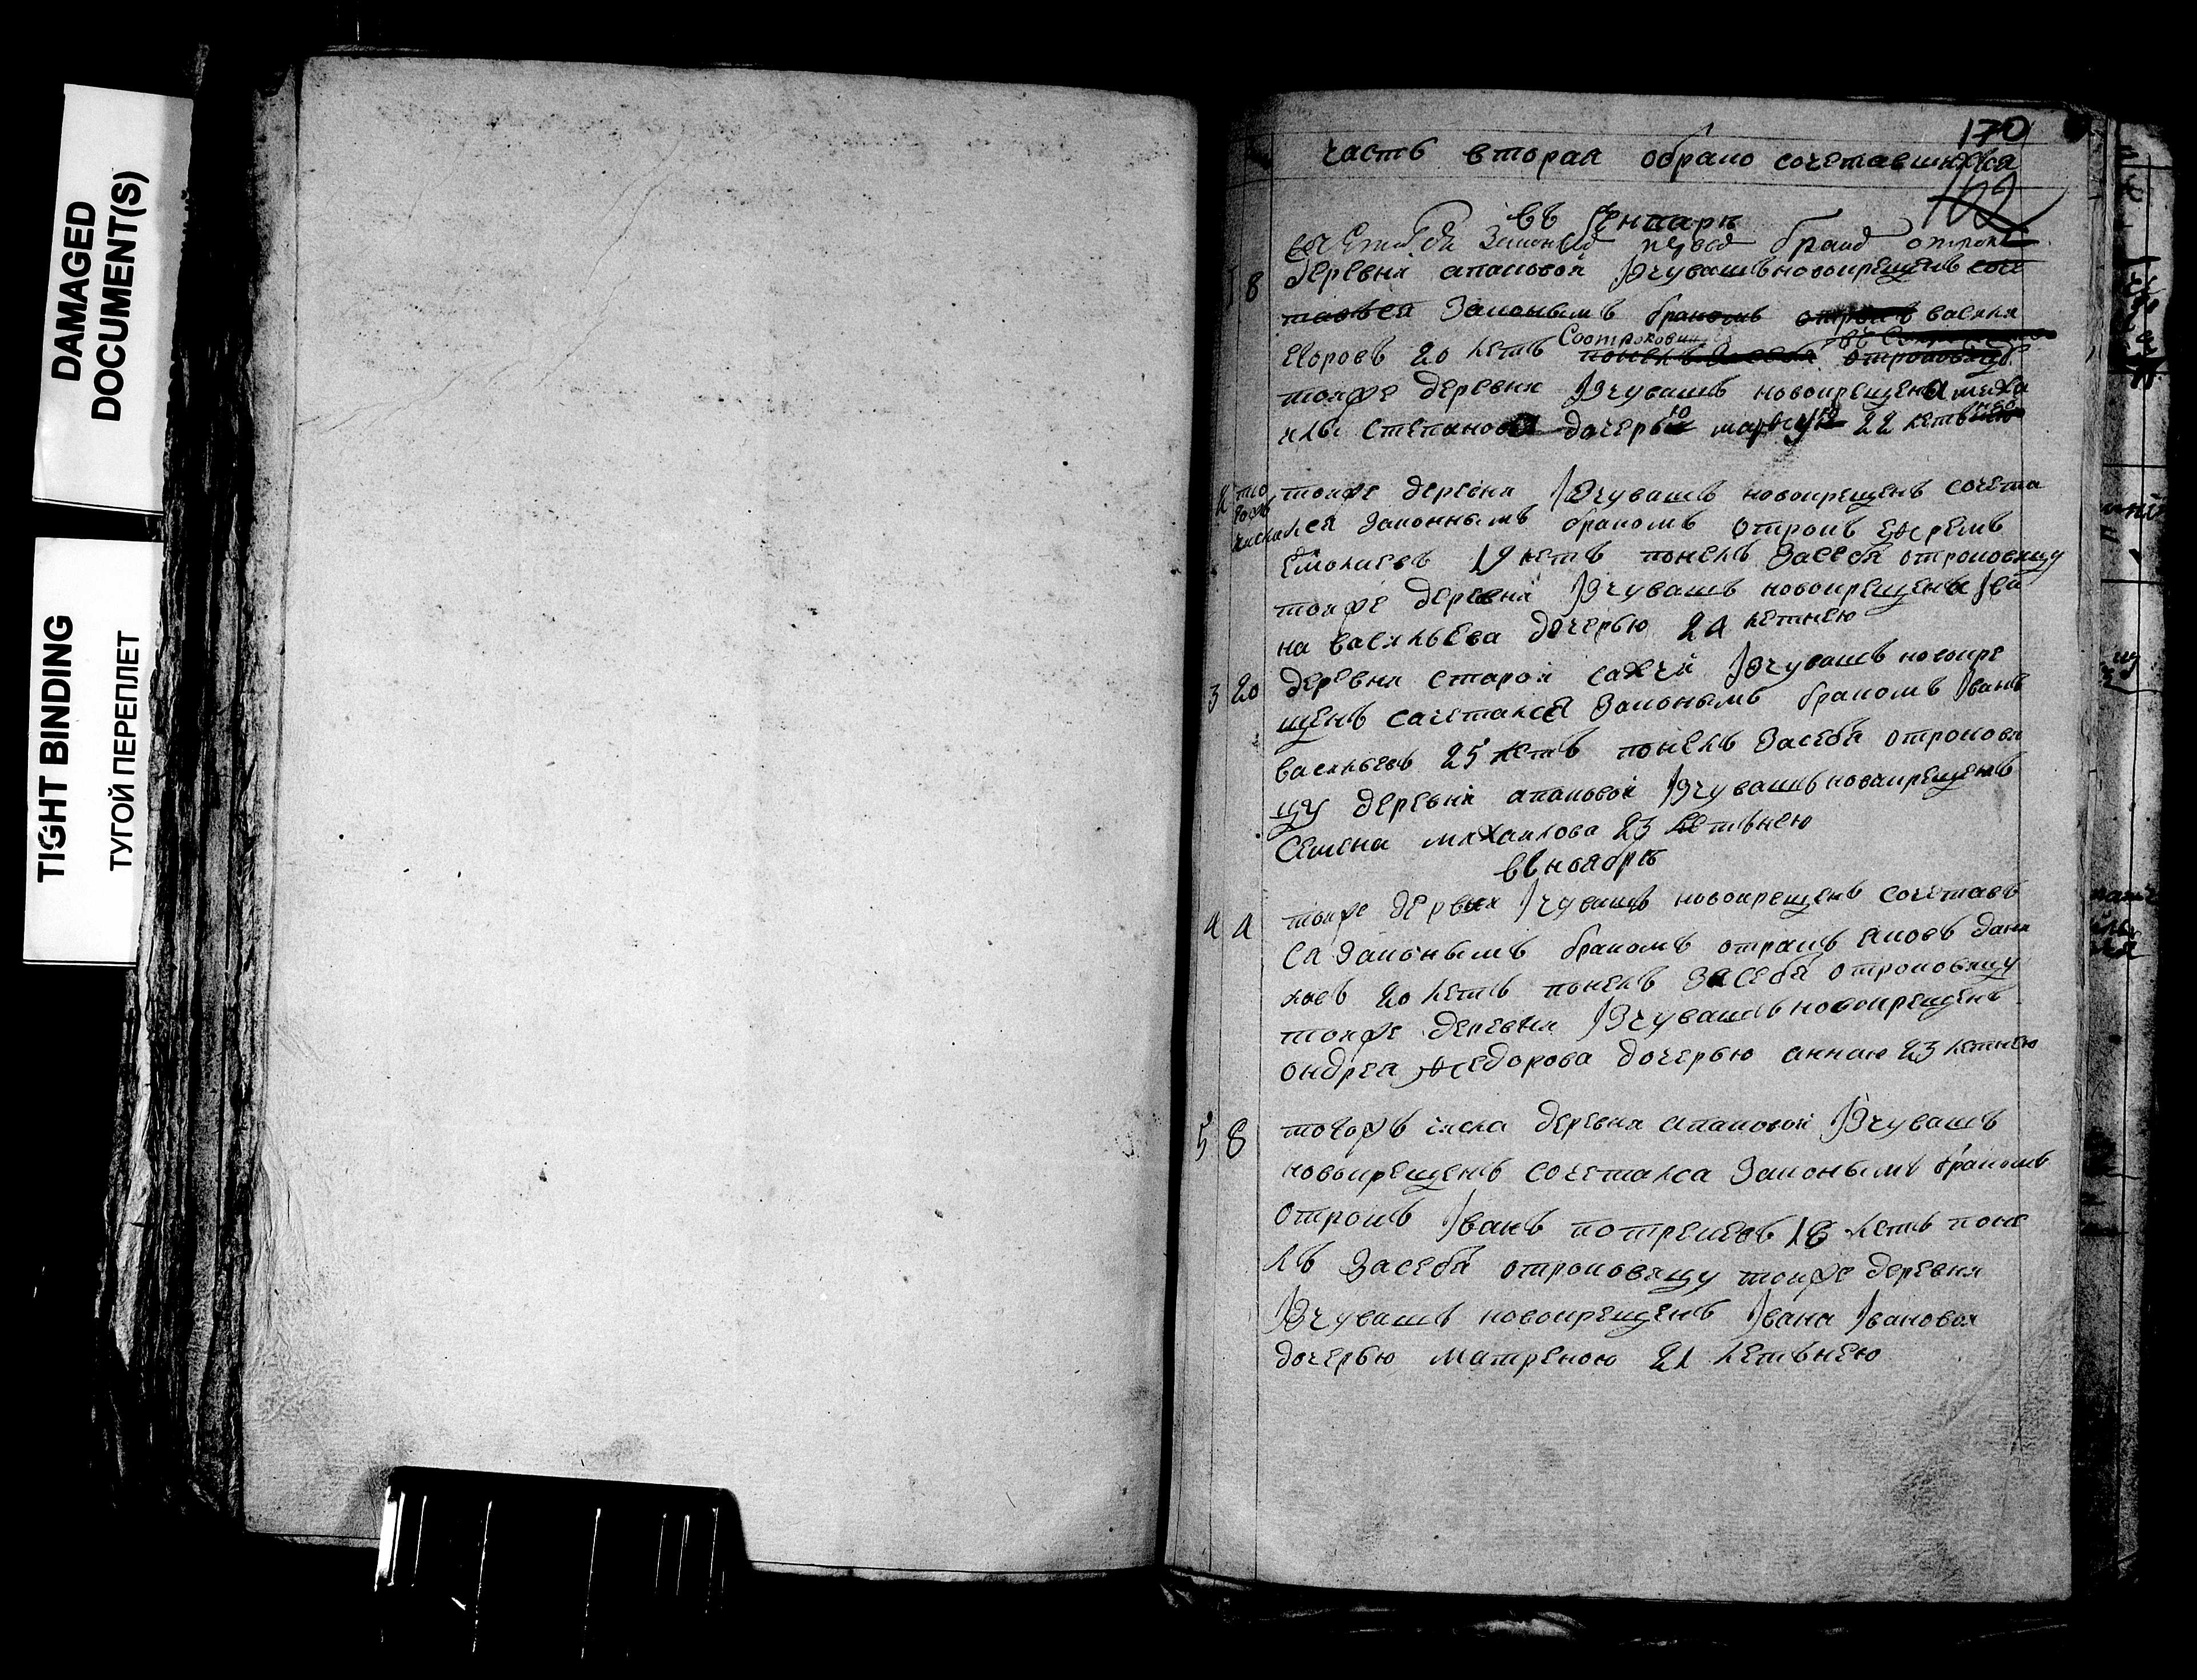 DAMAGED
DOCUMENT(S)
TIGHT BINDING
ТУГОЙ ПЕРЕПЛЕТ
170
часть вторая обрако сочетавшихся
102
въ генваре
законныи первы бракъ отрокъ
1 8 деревни апаковой Iзчувашъ новокрещенъ соче
тался Законымъ бракомъ отрокъ васили
егоровъ 20 летъ понелъ Засебя отроковицу
тоиже деревни Iзчувашъ новокрещена миха
илы степанова дочерью марфу 22 летънею
2 того тоиже деревни Iзчувашъ новокрещенъ сочета
гожъ
числа лся Законнымъ бракомъ отрокъ ефремъ
19 летъ понелъ Засебя отроковицу
тоиже деревни Iзчувашъ новокрещена Iва
на васильева дочерью 24 летнею
3 20 деревни старой сахчи Iзчувашъ новокре
щенъ сачетался Законымъ бракомъ Iванъ
васильевъ 25 летъ понелъ Засебя отрокови
цу деревни апаковой Iзчувашъ новокрещенъ
Семена михаилова 23 летьнею
въ ноябре
4 4 тоиже деревни Iчувашъ новокрещенъ сочетавъ
са Законымъ бракомъ отракъ яковъ дани
ловъ 20 летъ понелъ Засебя отроковицу
тоиже деревни Iзчувашъ новокрещенъ
ондрея федорова дочерью аннаю 23 летнею
5 8 тогожъ числа деревни апаковой Iзчувашъ
новокрещенъ сочеталса Законымъ бракомъ
отрокъ Iванъ 18 летъ поне
лъ Засебя отроковицу тоиже деревни
Iзчувашъ новокрещенъ Iвана Iвановоя
дочерью матреною 21 летьнею